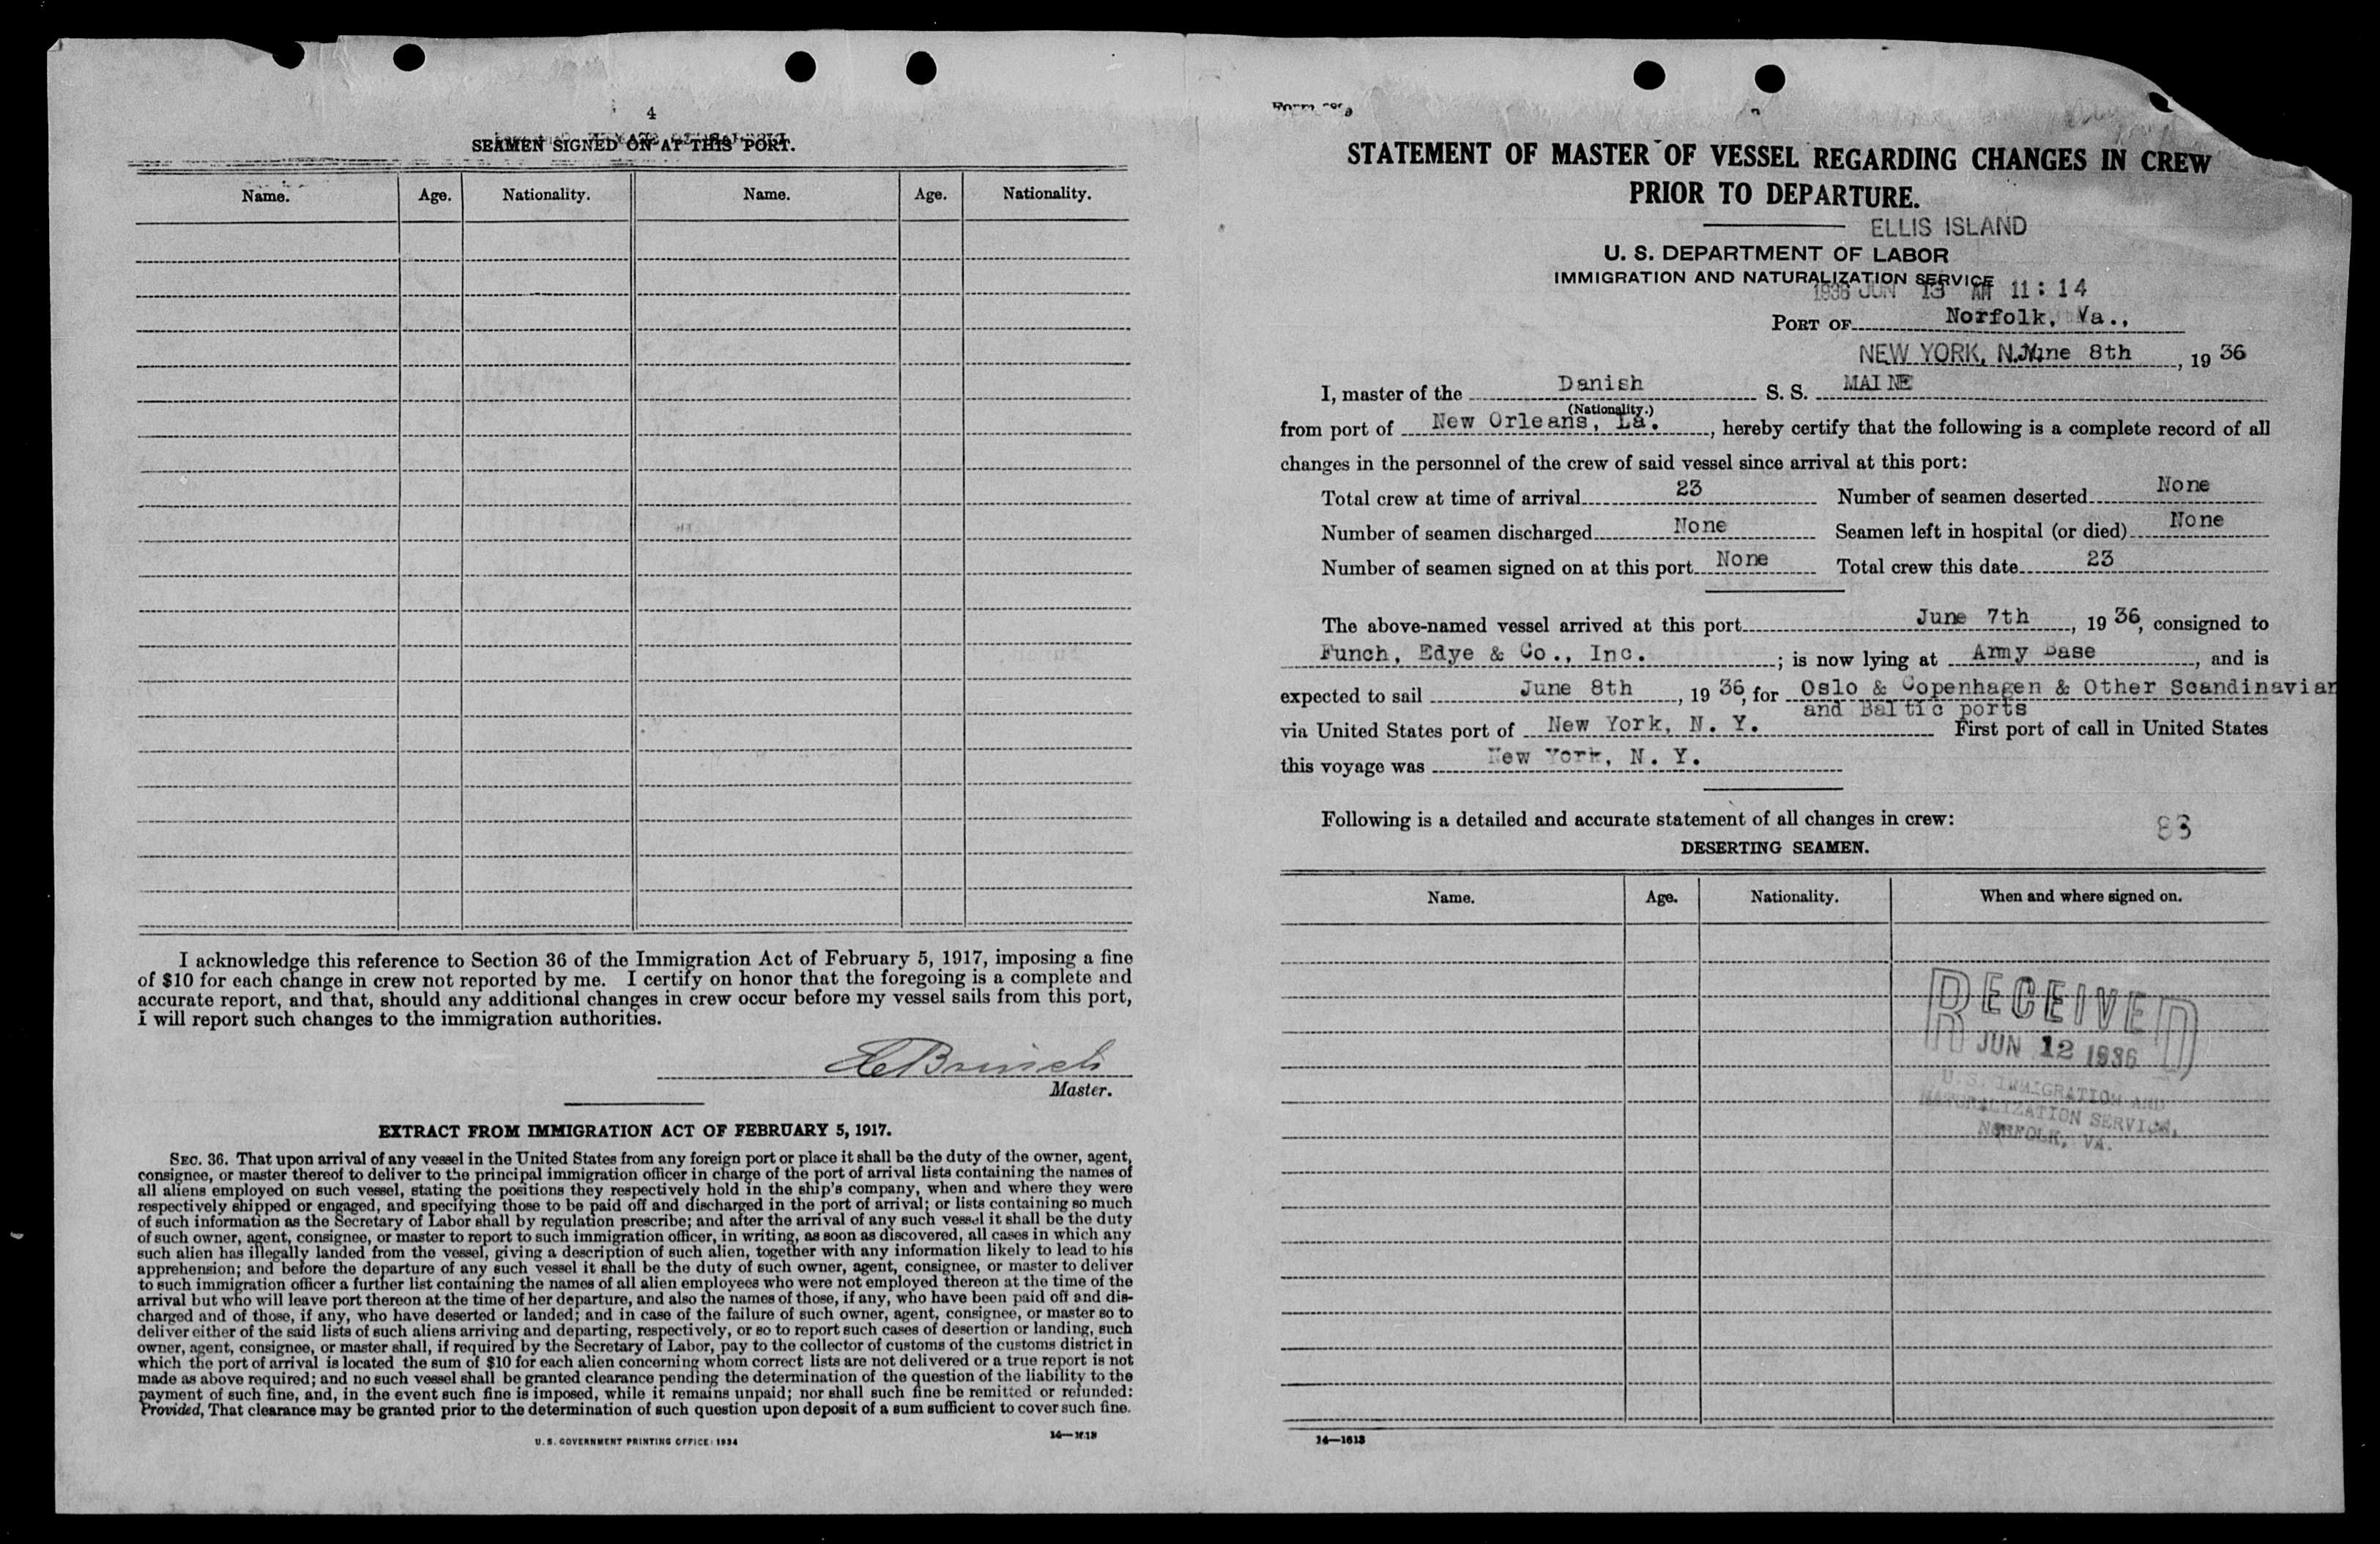 4
SEAMEN SIGNED ON AT THIS PORT.
Name. Age. Nationality. Name. Age. Nationality.
I acknowledge this reference to Section 36 of the Immigration Act of February 5, 1917, imposing a fine
of $10 for each change in crew not reported by me. I certify on honor that the foregoing is a complete and
accurate report, and that, should any additional changes in crew occur before my vessel sails from this port,
I will report such changes to the immigration authorities.
Master.
EXTRACT FROM IMMIGRATION ACT OF FEBRUARY 5, 1917.
SEC. 36. That upon arrival of any vessel in the United States from any foreign port or place it shall be the duty of the owner, agent,
consignee, or master thereof to deliver to the principal immigration officer in charge of the port of arrival lists containing the names of
all aliens employed on such vessel, stating the positions they respectively hold in the ship's company, when and where they were
respectively shipped or engaged, and specifying those to be paid off and discharged in the port of arrival; or lists containing so much
of such information as the Secretary of Labor shall by regulation prescribe; and after the arrival of any such vessel it shall be the duty
of such owner, agent, consignee, or master to report to such immigration officer, in writing, as soon as discovered, all cases in which any
such alien has illegally landed from the vessel, giving a description of such alien, together with any information likely to lead to his
apprehension; and before the departure of any such vessel it shall be the duty of such owner, agent, consignee, or master to deliver
to such immigration officer a further list containing the names of all alien employees who were not employed thereon at the time of the
arrival but who will leave port thereon at the time of her departure, and also the names of those, if any, who have been paid off and dis-
charged and of those, if any, who have deserted or landed; and in case of the failure of such owner, agent, consignee, or master so to
deliver either of the said lists of such aliens arriving and departing, respectively, or so to report such cases of desertion or landing, such
owner, agent, consignee, or master shall, if required by the Secretary of Labor, pay to the collector of customs of the customs district in
which the port of arrival is located the sum of $10 for each alien concerning whom correct lists are not delivered or a true report is not
made as above required; and no such vessel shall be granted clearance pending the determination of the question of the liability to the
payment of such fine, and, in the event such fine is imposed, while it remains unpaid; nor shall such fine be remitted or refunded:
Provided, That clearance may be granted prior to the determination of such question upon deposit of a sum sufficient to cover such fine.
U. S. GOVERNMENT PRINTING OFFICE: 1934 14—1613
STATEMENT OF MASTER OF VESSEL REGARDING CHANGES IN CREW
PRIOR TO DEPARTURE.
ELLIS ISLAND
U. S. DEPARTMENT OF LABOR
IMMIGRATION AND NATURALIZATION SERVICE
1936 JUN 13 AM 11:14
PORT OF Norfolk, Va.,
NEW YORK, N.Y. June 8th, 19 36
I, master of the Danish S. S. MAINE
(Nationality.)
from port of New Orleans, La., hereby certify that the following is a complete record of all
changes in the personnel of the crew of said vessel since arrival at this port:
Total crew at time of arrival 23 Number of seamen deserted None
Number of seamen discharged None Seamen left in hospital (or died) None
Number of seamen signed on at this port None Total crew this date 23
The above-named vessel arrived at this port June 7th, 19 36, consigned to
Funch, Edye & Co., Inc. ; is now lying at Army Base, and is
expected to sail June 8th, 19 36, for Oslo & Copenhagen & Other Scandinavian
and Baltic ports
via United States port of New York, N. Y. First port of call in United States
this voyage was New York, N. Y.
Following is a detailed and accurate statement of all changes in crew:
83
DESERTING SEAMEN.
Name. Age. Nationality. When and where signed on.
RECEIVED
JUN 12 1936
U. S. IMMIGRATION AND
NATURALIZATION SERVICE,
NORFOLK, VA.
14—1613